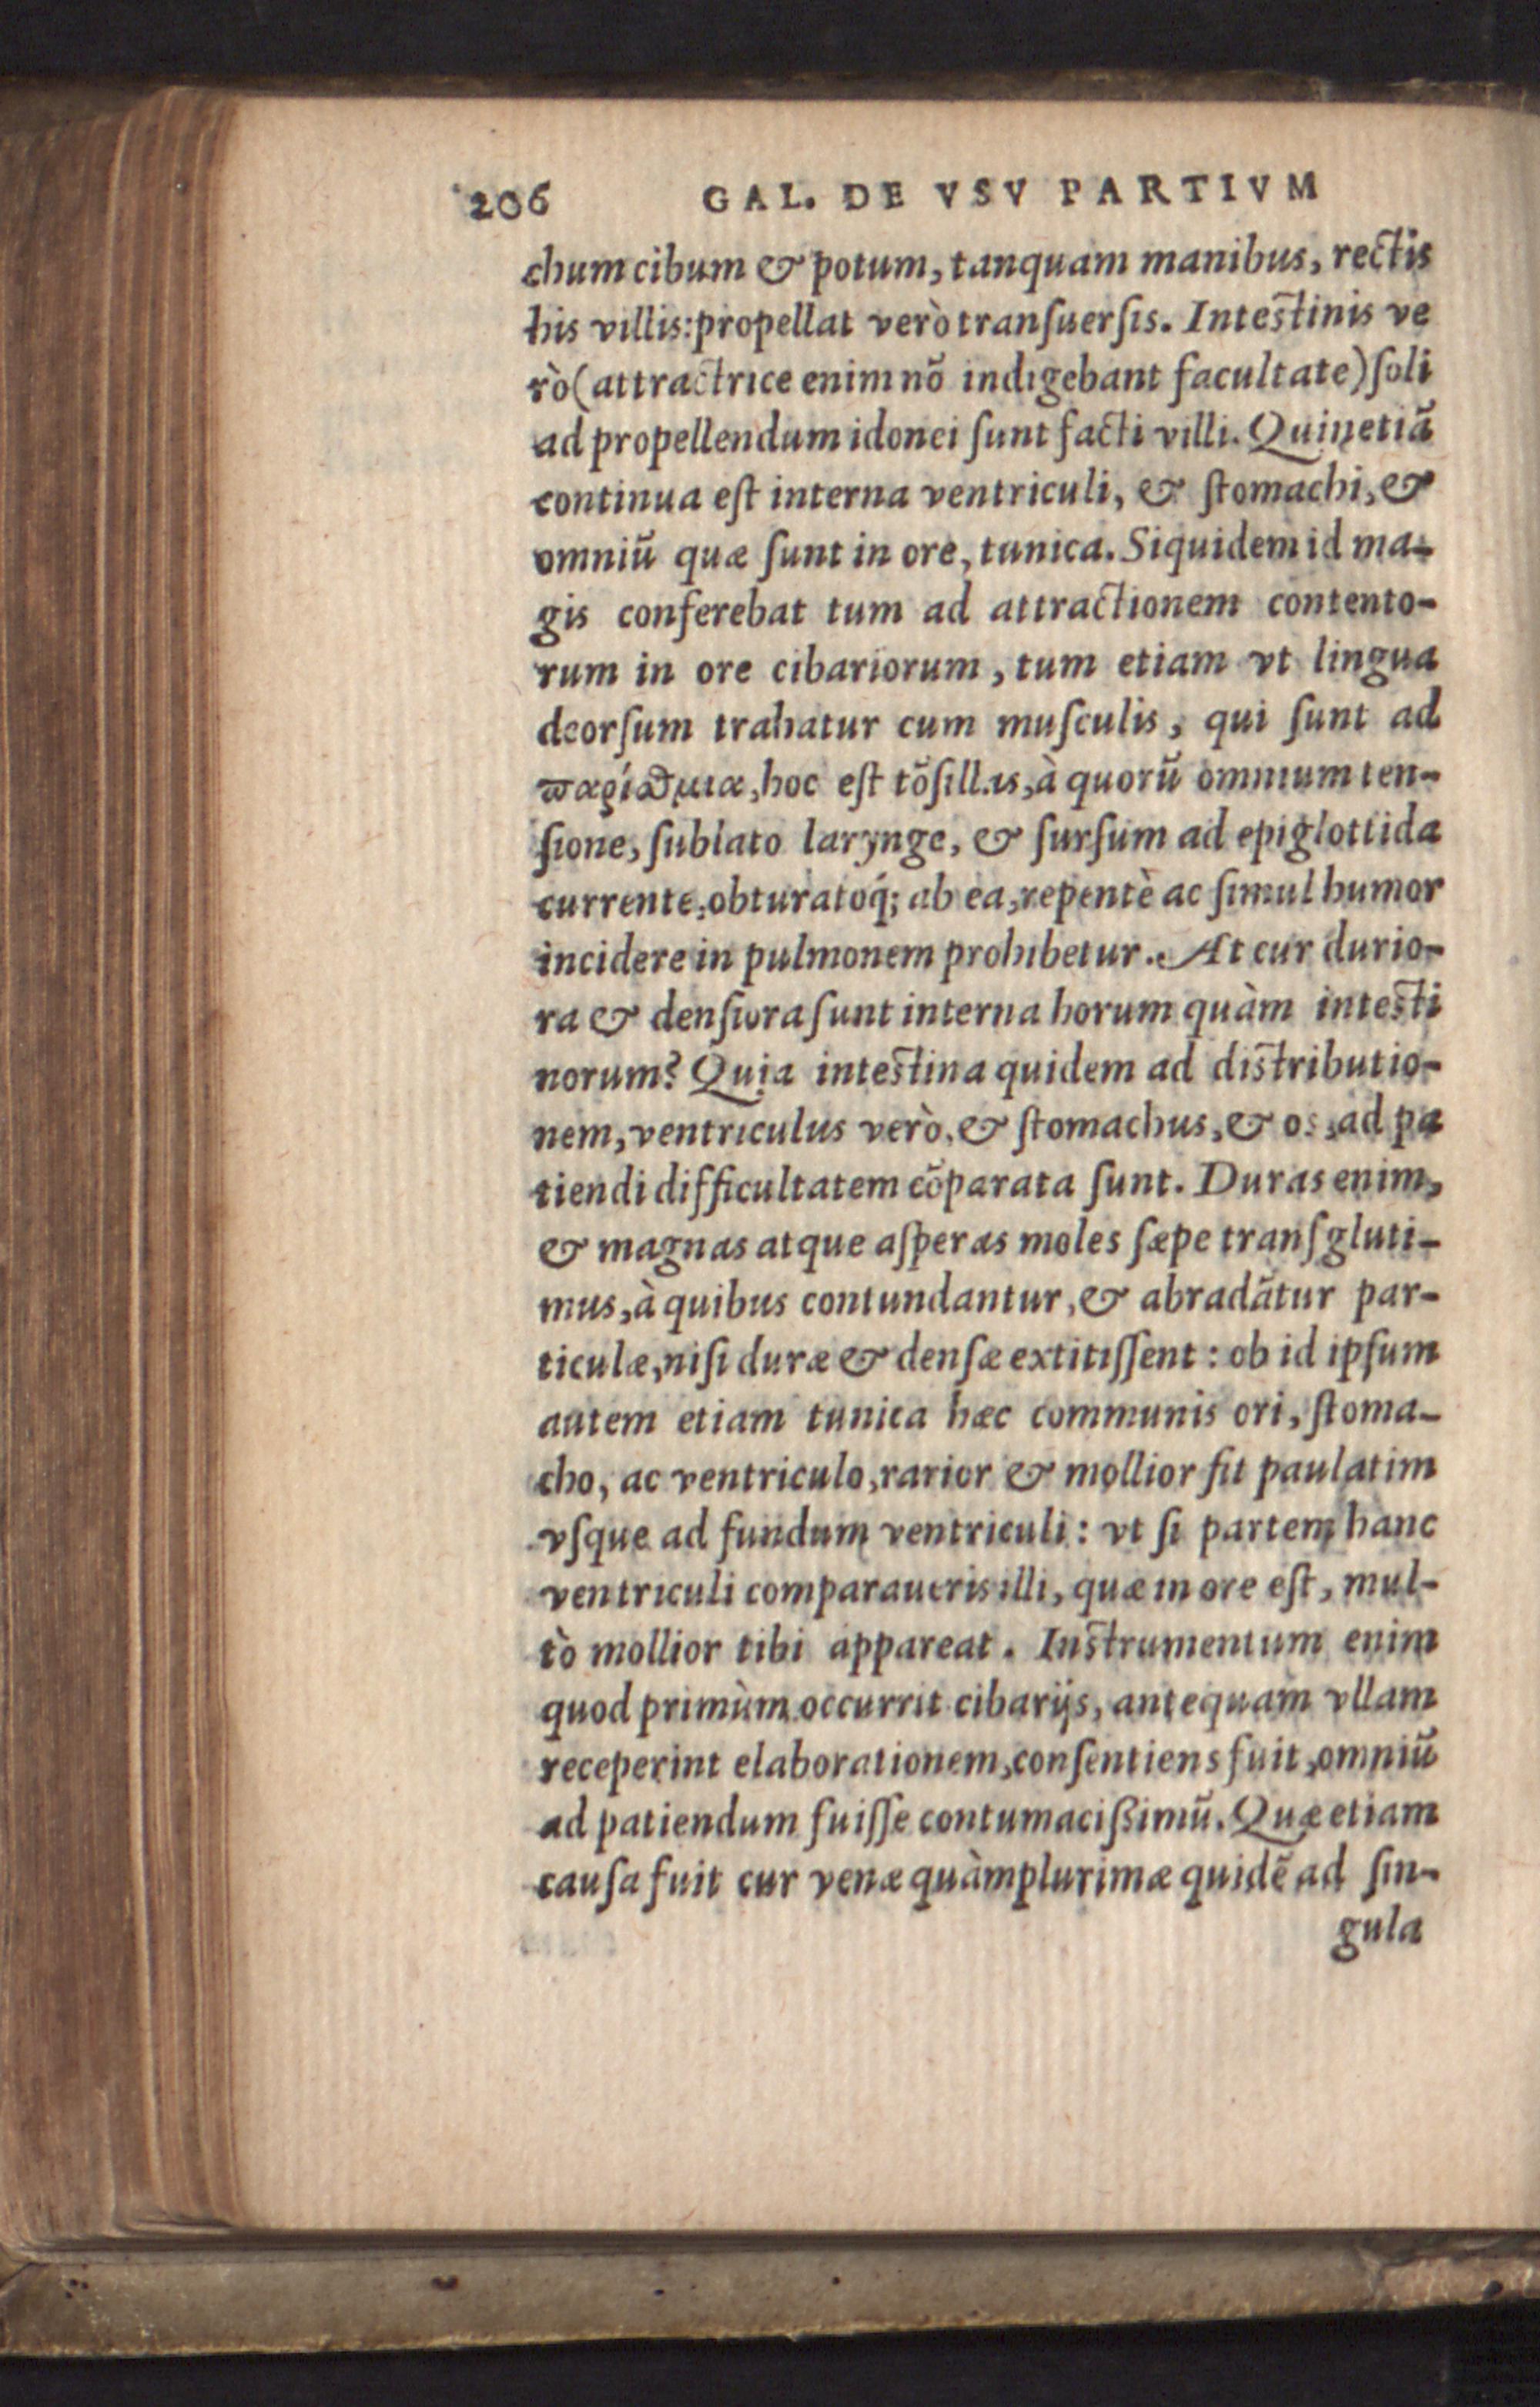 206 GAL. DE VSV PARTIVM
chum cibum & potum, tanquam manibus, rectis
his villis: propellat verò tranſuerſis. Inteſtinis ve
rò (attractrice enim nō indigebant facultate) ſoli
ad propellendum idonei ſunt facti villi. Quinetiā
continua eſt interna ventriculi, & ſtomachi, &
omniū quæ ſunt in ore, tunica. Siquidem id ma-
gis conferebat tum ad attractionem contento-
rum in ore cibariorum, tum etiam vt lingua
deorſum trahatur cum muſculis, qui ſunt ad
παρίσθμια, hoc eſt tōſillas, à quorū omnium ten-
ſione, ſublato larynge, & ſurſum ad epiglottida
currente, obturatoq́; ab ea, repentè ac ſimul humor
incidere in pulmonem prohibetur. At cur durio-
ra & denſiora ſunt interna horum quàm inteſti
norum? Quia inteſtina quidem ad diſtributio-
nem, ventriculus verò, & ſtomachus, & os, ad pa
tiendi difficultatem cōparata ſunt. Duras enim,
& magnas atque aſperas moles ſæpe tranſgluti-
mus, à quibus contundantur, & abradātur par-
ticulæ, niſi duræ & denſæ extitiſſent: ob id ipſum
autem etiam tunica hæc communis ori, ſtoma-
cho, ac ventriculo, rarior & mollior fit paulatim
vſque ad fundum ventriculi: vt ſi partem hanc
ventriculi comparaueris illi, quæ in ore eſt, mul-
tò mollior tibi appareat. Inſtrumentum enim
quod primùm occurrit cibarijs, antequam vllam
receperint elaborationem, conſentiens fuit, omniū
ad patiendum fuiſſe contumacißimū. Quæ etiam
cauſa fuit cur venæ quàmplurimæ quidē ad ſin-
gula